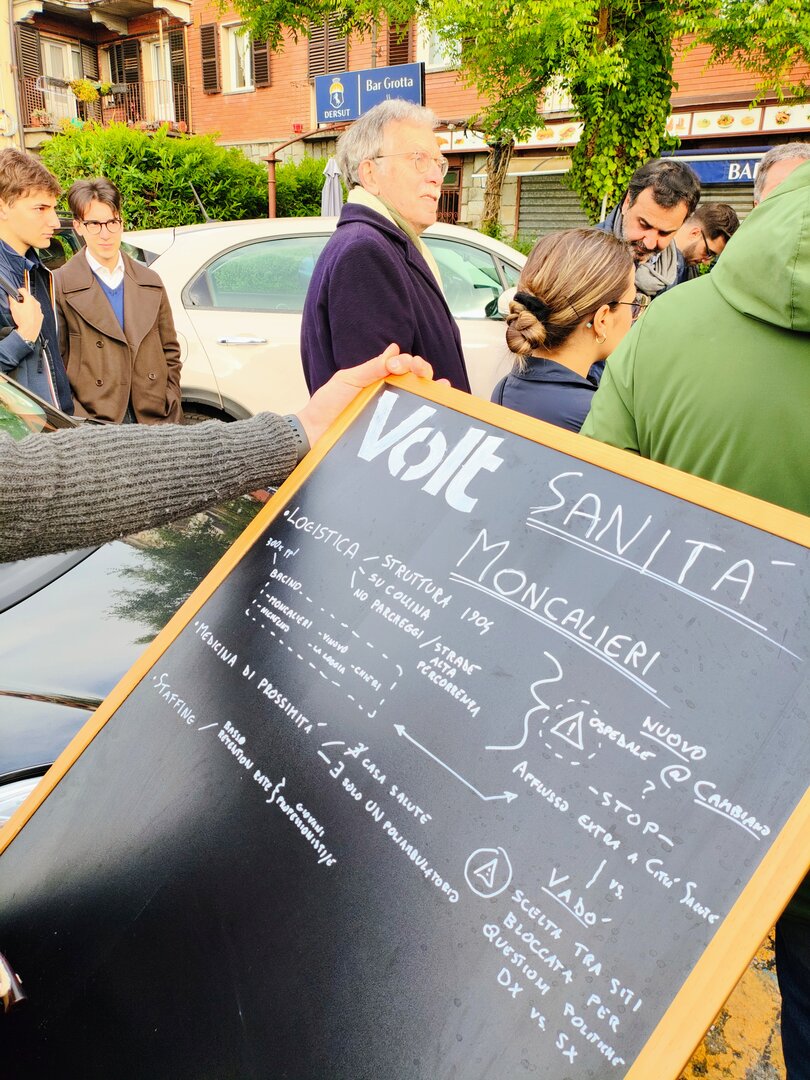 DERSUT
Bar Grotta
BA
Volt
SANITÀ
MONCALIERI
• LOGISTICA
- STRUTTURA 1904
- SU COLLINA
\ NO PARCHEGGI / STRADE
ALTA
PERCORRENZA
BACINO
- MONCALIERI - VINOVO - CHIERI
- NICHELINO - LA LOGGIA
• MEDICINA DI PROSSIMITÀ
∄ CASA SALUTE
∃ SOLO UN POLIAMBULATORIO
• STAFFING / BASSO
RETENTION RATE
GIOVANI
PROFESSIONISTI/E
NUOVO
OSPEDALE @ CAMBIANO
?
- STOP -
AFFLUSSO EXTRA A CITTÀ SALUTE
vs.
VADÒ
SCELTA TRA SITI
BLOCCATA PER
QUESTIONI POLITICHE
DX vs. SX